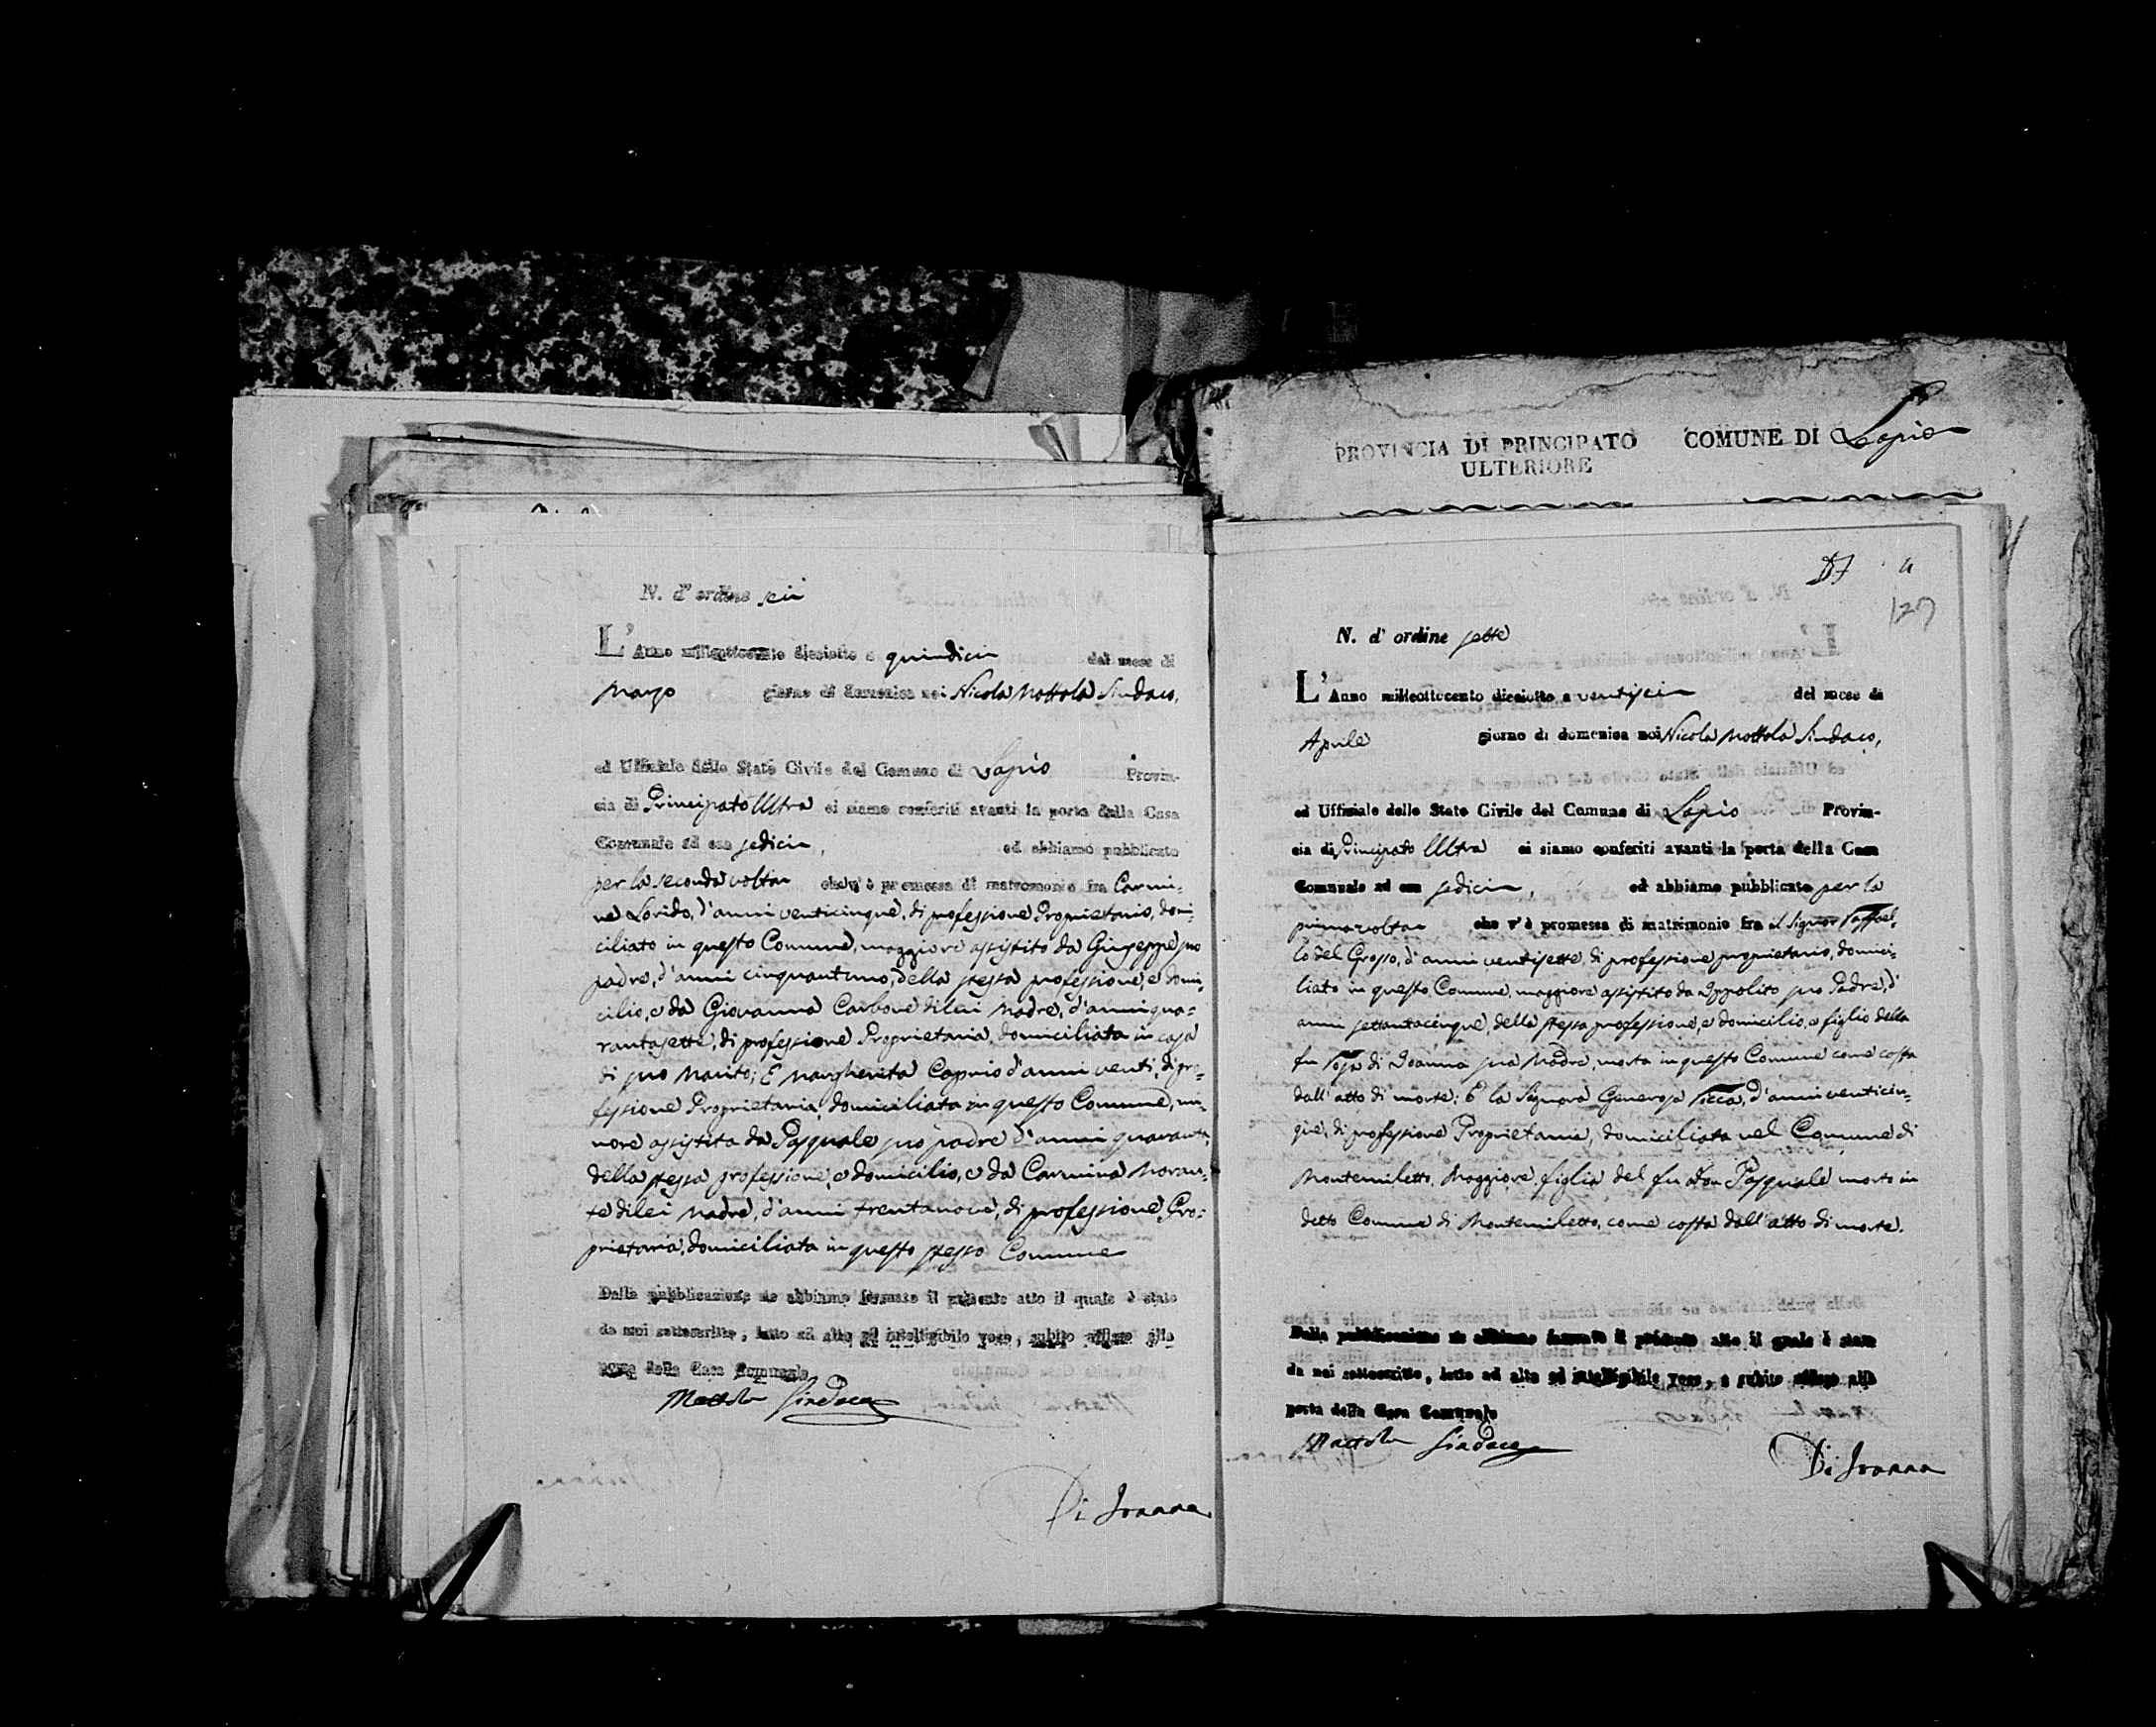 N. d' ordine sei
L' Anno milleottocento dieciotto a quindici del mese di
Marzo giorno di domenica noi Nicola Mottola Sindaco,
ed Uffiziale dello Stato Civile del Comune di Lapio Provin-
cia di Principato Ultra ci siamo conferiti avanti la porta della Casa
Comunale ad ore sedici, ed abbiamo pubblicato
per la seconda volta che v'è promessa di matrimonio fra Carmi-
ne Lorido, d'anni venticinque, di professione Proprietario, domi-
ciliato in questo Comune, maggiore assistito da Giuseppe suo
padre, d'anni cinquantuno, della stessa professione, e domi-
cilio, e da Giovanna Carbone di lui Madre, d'anni qua-
rantasette, di professione Proprietaria, domiciliata in casa
di suo Marito; E Margherita Caprio d'anni venti, di pro-
fessione Proprietaria, domiciliata in questo Comune, mi-
nore assistita da Pasquale suo padre d'anni quaranta,
della stessa professione, e domicilio, e da Carmina Moran-
te di lei Madre, d'anni trentanove, di professione Pro-
prietaria, domiciliata in questo stesso Comune
Dalla pubblicazione ne abbiamo formato il presente atto il quale è stato
da noi sottoscritto, letto ad alta ed intelligibile voce, subito affisso alla
porta della Casa Comunale
Mottola Sindaco
Di Joanna
PROVINCIA DI PRINCIPATO COMUNE DI Lapio
ULTERIORE
127
N. d' ordine sette
L' Anno milleottocento dieciotto a ventisei del mese di
Aprile giorno di domenica noi Nicola Mottola Sindaco,
ed Uffiziale dello Stato Civile del Comune di Lapio Provin-
cia di Principato Ultra ci siamo conferiti avanti la porta della Casa
Comunale ad ore sedici, ed abbiamo pubblicato per la
prima volta che v'è promessa di matrimonio fra il Signor Raffael-
lo del Grosso, d'anni ventisette, di professione proprietario, domici-
liato in questo Comune, maggiore assistito da Ippolito suo Padre, d'
anni settantacinque, della stessa professione, e domicilio, e figlio della
fu Rosa di Joanna sua Madre, morta in questo Comune come costa
dall' atto di morte; E la Signora Generosa Ricca, d'anni venticin-
que, di professione Proprietaria, domiciliata nel Comune di
Montemiletto, Maggiore, figlia del fu Don Pasquale morto in
detto Comune di Montemiletto, come costa dall' atto di morte.
Dalla pubblicazione ne abbiamo formato il presente atto il quale è stato
da noi sottoscritto, letto ad alta ed intelligibile voce, e subito affisso alla
porta della Casa Comunale
Mottola Sindaco
Di Joanna